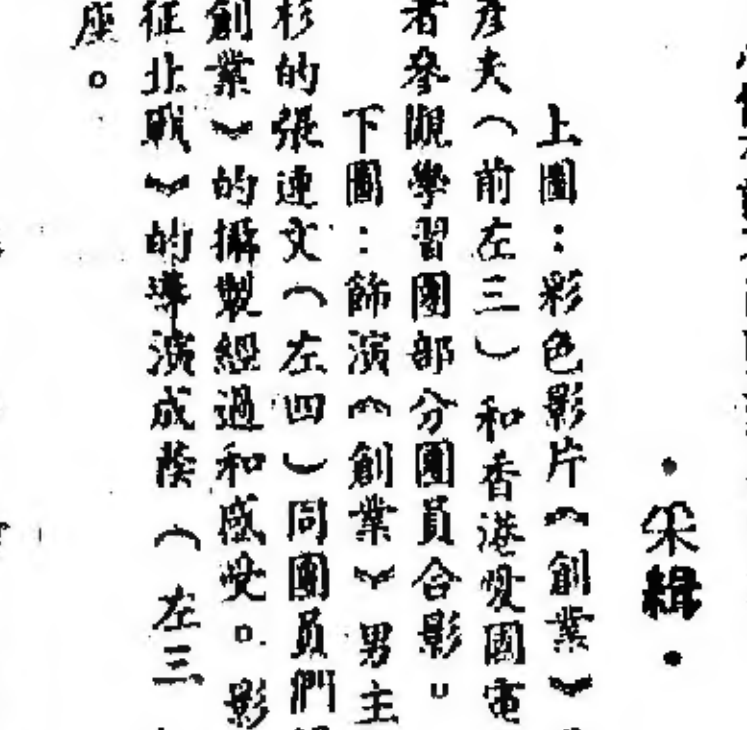 ·朱緝·
上圖：彩色影片《創業》
彦夫（前左三）和香港愛國電
者參觀學習團部分團員合影。
下圖：飾演《創業》男主
杉的張連文（左四）同團員們
創業》的攝製經過和感受。影
征北戰》的導演成蔭（左三
座。